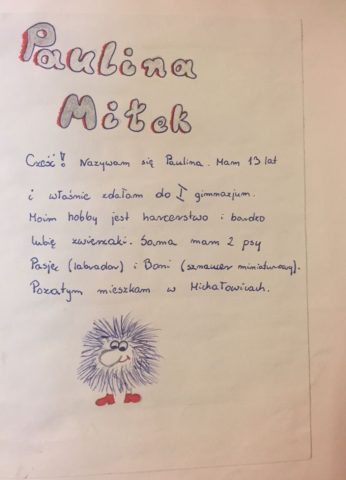 Paulina
Miłek
Cześć! Nazywam się Paulina. Mam 13 lat
i właśnie zdałam do I gimnazjum.
Moim hobby jest harcerstwo i bardzo
lubię zwierzaki. Sama mam 2 psy
Pasję (labrador) i Boni (sznaucer miniaturowy).
Pozatym mieszkam w Michałowicach.